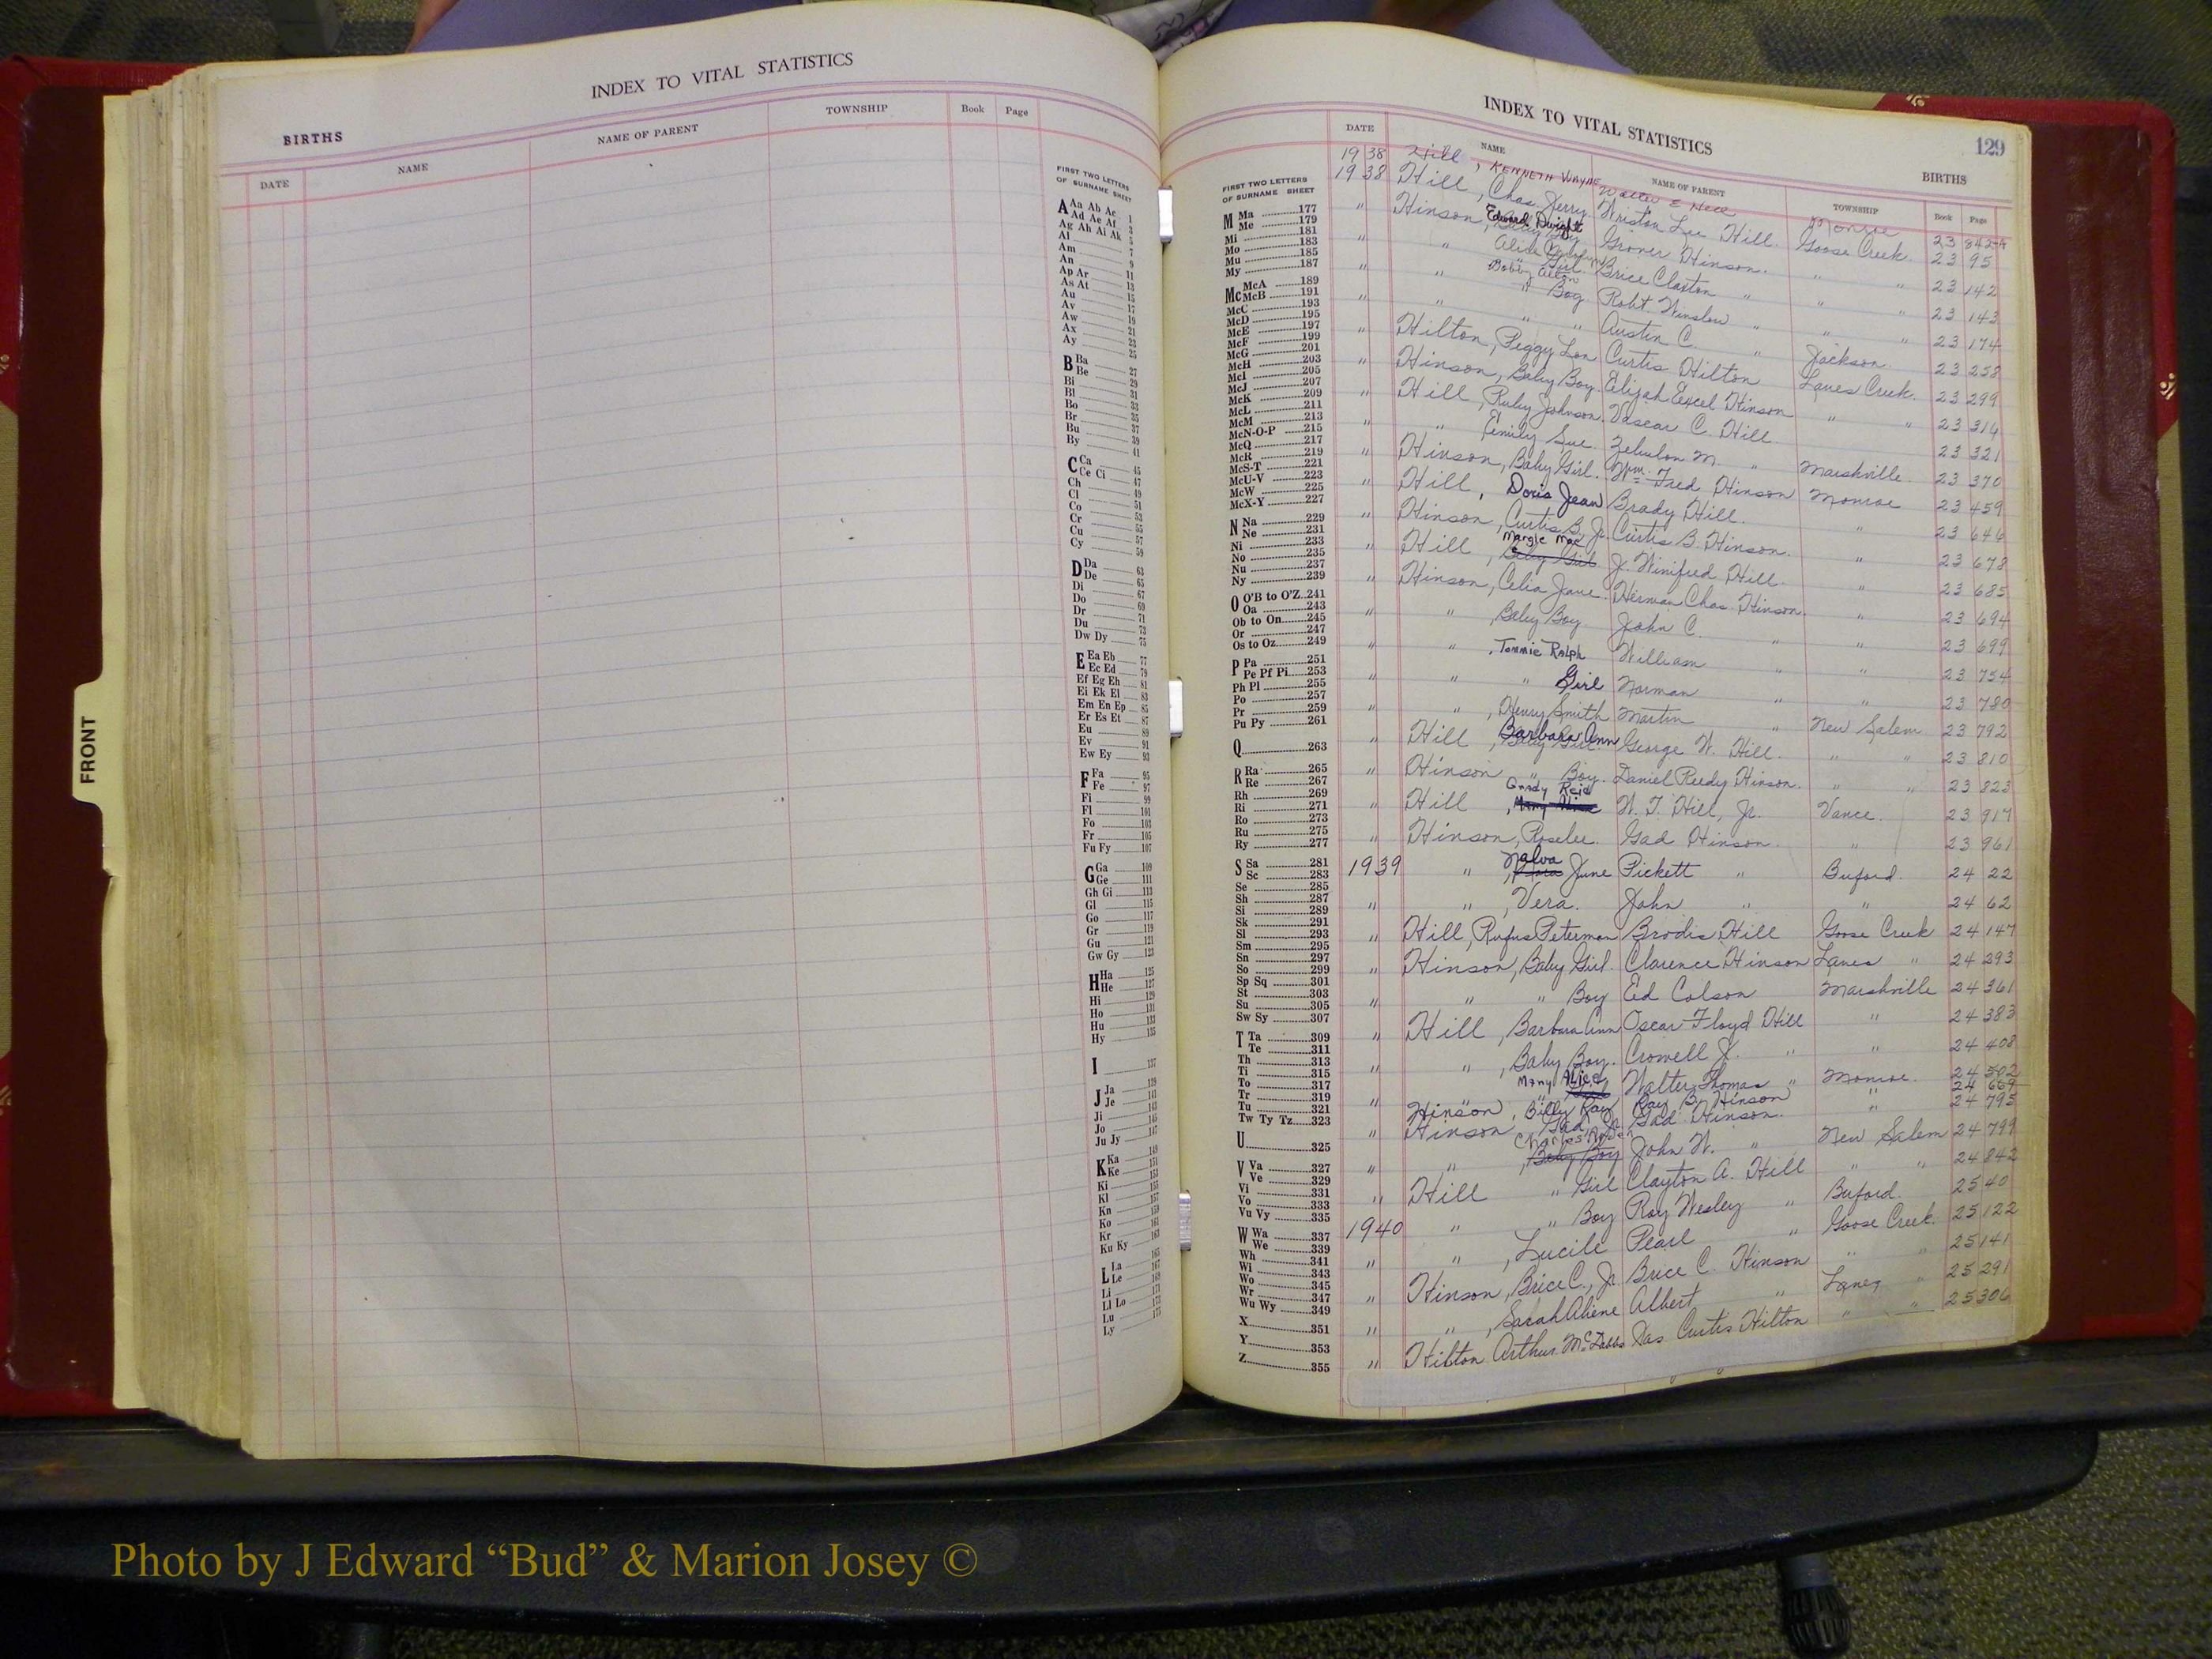 INDEX TO VITAL STATISTICS
BIRTHS
DATE NAME NAME OF PARENT TOWNSHIP Book Page
FIRST TWO LETTERS
OF SURNAME SHEET
A Aa Ab Ac 1
Ad Ae Af 3
Ag Ah Ai Ak 5
Al 7
Am 9
An 11
Ap Ar 13
As At 15
Au 17
Av 19
Aw 21
Ax 23
Ay 25
B Ba 27
Be 29
Bi 31
Bl 33
Bo 35
Br 37
Bu 39
By 41
C Ca 45
Ce Ci 47
Ch 49
Cl 51
Co 53
Cr 55
Cu 57
Cy 59
D Da 63
De 65
Di 67
Do 69
Dr 71
Du 73
Dw Dy 75
E Ea Eb 77
Ec Ed 79
Ef Eg Eh 81
Ei Ek El 83
Em En Ep 85
Er Es Et 87
Eu 89
Ev 91
Ew Ey 93
F Fa 95
Fe 97
Fi 99
Fl 101
Fo 103
Fr 105
Fu Fy 107
G Ga 109
Ge 111
Gh Gi 113
Gl 115
Go 117
Gr 119
Gu 121
Gw Gy 123
H Ha 125
He 127
Hi 129
Ho 131
Hu 133
Hy 135
I 137
J Ja 139
Je 141
Ji 143
Jo 145
Ju Jy 147
K Ka 149
Ke 151
Ki 153
Kl 155
Kn 159
Ko 161
Kr 163
Ku Ky
L La 165
Le 167
Li 169
Ll Lo 171
Lu 173
Ly 175
FRONT
INDEX TO VITAL STATISTICS
129
BIRTHS
FIRST TWO LETTERS
OF SURNAME SHEET
M Ma 177
Me 179
Mi 181
Mo 183
Mu 185
My 187
Mc McA 189
McB 191
McC 193
McD 195
McE 197
McF 199
McG 201
McH 203
McI 205
McJ 207
McK 209
McL 211
McM 213
McN-O-P 215
McQ 217
McR 219
McS-T 221
McU-V 223
McW 225
McX-Y 227
N Na 229
Ne 231
Ni 233
No 235
Nu 237
Ny 239
O O'B to O'Z 241
Oa 243
Ob to On 245
Or 247
Os to Oz 249
P Pa 251
Pe Pf Pi 253
Ph Pl 255
Po 257
Pr 259
Pu Py 261
Q 263
R Ra 265
Re 267
Rh 269
Ri 271
Ro 273
Ru 275
Ry 277
S Sa 281
Sc 283
Se 285
Sh 287
Si 289
Sk 291
Sl 293
Sm 295
Sn 297
So 299
Sp Sq 301
St 303
Su 305
Sw Sy 307
T Ta 309
Te 311
Th 313
Ti 315
To 317
Tr 319
Tu 321
Tw Ty Tz 323
U 325
V Va 327
Ve 329
Vi 331
Vo 333
Vu Vy 335
W Wa 337
We 339
Wh 341
Wi 343
Wo 345
Wr 347
Wu Wy 349
X 351
Y 353
Z 355
DATE NAME NAME OF PARENT TOWNSHIP Book Page
1938 Hill, KENNETH WAYNE Walter E Hill Monroe 23 842-A
1938 Hill, Chas. Jerry Wriston Lee Hill. Goose Creek 23 95
" Hinson, Edward Dwight Grover Hinson. " " 23 142
" " Girl. Brice Claxton " " " 23 143
" " Bobby " Boy Robt Winslow " " " 23 174
" " " " Austin C. " Jackson. 23 258
" Hilton, Peggy Lou Curtis Hilton Lanes Creek. 23 299
" Hinson, Baby Boy. Elijah Excel Hinson " " 23 314
" Hill, Ruby Johnson. Vascar C. Hill. 23 321
" " Emily Sue Zebulon M. " Marshville. 23 370
" Hinson, Baby Girl. Wm. Fred Hinson Monroe 23 459
" Hill, Doris Jean Brady Hill. " 23 646
" Hinson, Curtis B. Jr. Curtis B. Hinson. " 23 678
" Hill, Margie Mae Baby Girl J. Winifred Hill. " 23 685
" Hinson, Celia Jane. Herman Chas. Hinson. " 23 694
" " , Baby Boy. John C. " " 23 699
" " , Tommie Ralph William " " 23 754
" " " Girl Norman " " 23 780
" " , Henry Smith Martin " New Salem 23 792
" Hill, Barbara Ann Baby Girl George W. Hill. " " 23 810
" Hinson " Boy. Daniel Reedy Hinson. " " 23 823
" Hill, Grady Reid W. T. Hill, Jr. Vance. 23 917
" Hinson, Roselee. Gad Hinson. " 23 961
1939 " , Nelva June Pickett " Buford. 24 22
" " , Vera. John " " 24 62
" Hill, Rufus Peterman Brodis Hill Goose Creek 24 147
" Hinson, Baby Girl. Clarence Hinson Lanes " 24 293
" " " Boy Ed Colson Marshville 24 361
" Hill, Barbara Ann Oscar Floyd Hill " 24 383
" " , Baby Boy. Crowell J. " " 24 408
" " Mary Alice Walter Thomas " Monroe. 24 502
Hinson, Billy Ray Ray B. Hinson " 24 659
" Hinson, Gad, Jr. Gad Hinson. " 24 795
" " , Charles Baby Boy John W. " New Salem 24 799
" Hill " Girl Clayton A. Hill " " 24 842
1940 " " Boy Roy Wesley " Buford. 25 40
" " , Lucile Pearl " Goose Creek. 25 122
" Hinson, Brice C., Jr. Brice C. Hinson " " 25 141
" " , Sarah Aliene Albert " Lanes " 25 291
" Hilton Arthur Jas. Curtis Hilton " " 25 306
Photo by J Edward “Bud” & Marion Josey ©